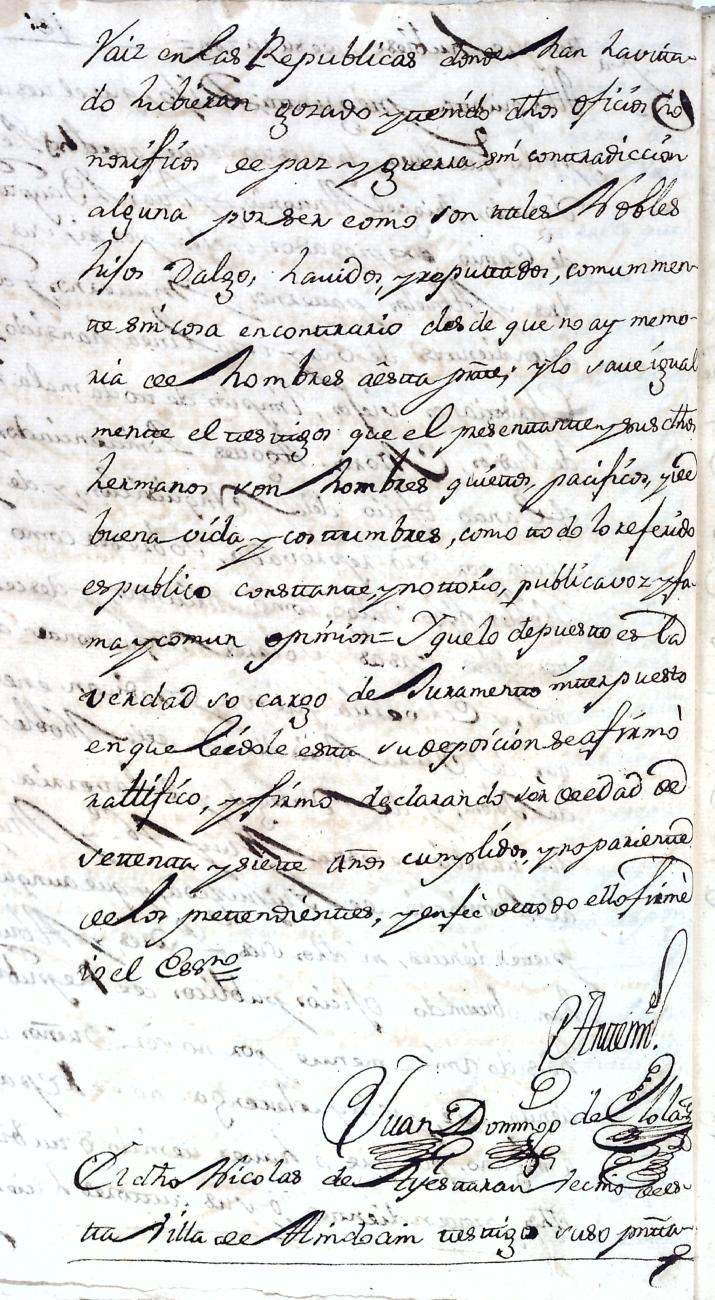 Vaiz en las Republicas donde han havita-
do hubieran gozado y tenido dhos oficios ho
norificos de paz y guerra sin contradiccion
alguna por ser como son tales Nobles
hijos Dalgo, havidos, y reputtados, comunmen-
tte sin cosa en conttrario desde que no ay memo-
ria de hombres aestta partte; y lo save igual
mentte el testtigo que el presenttante y sus dhos
hermanos son hombres quiettos, pacificos, y de
buena vida y costtumbres, como ttodo lo referido
es publico consttantte, y nottorio, publica voz y fa-
ma y comun opinion = Y que lo depuestto es la
verdad so cargo de Juramentto interpuesto
en que leidole estta su deposicion se afirmò
rattifico, y firmò declarando ser de edad de
settentta y siette años cumplidos, y no parientte
de los prettendienttes, y en feè de ttodo ello firmè
io el Essno
Antte mi
Juan Domingo de
El dho Nicolas de Ayesttaran vecino de es-
tta Villa de Andoain testtigo suso prtta-